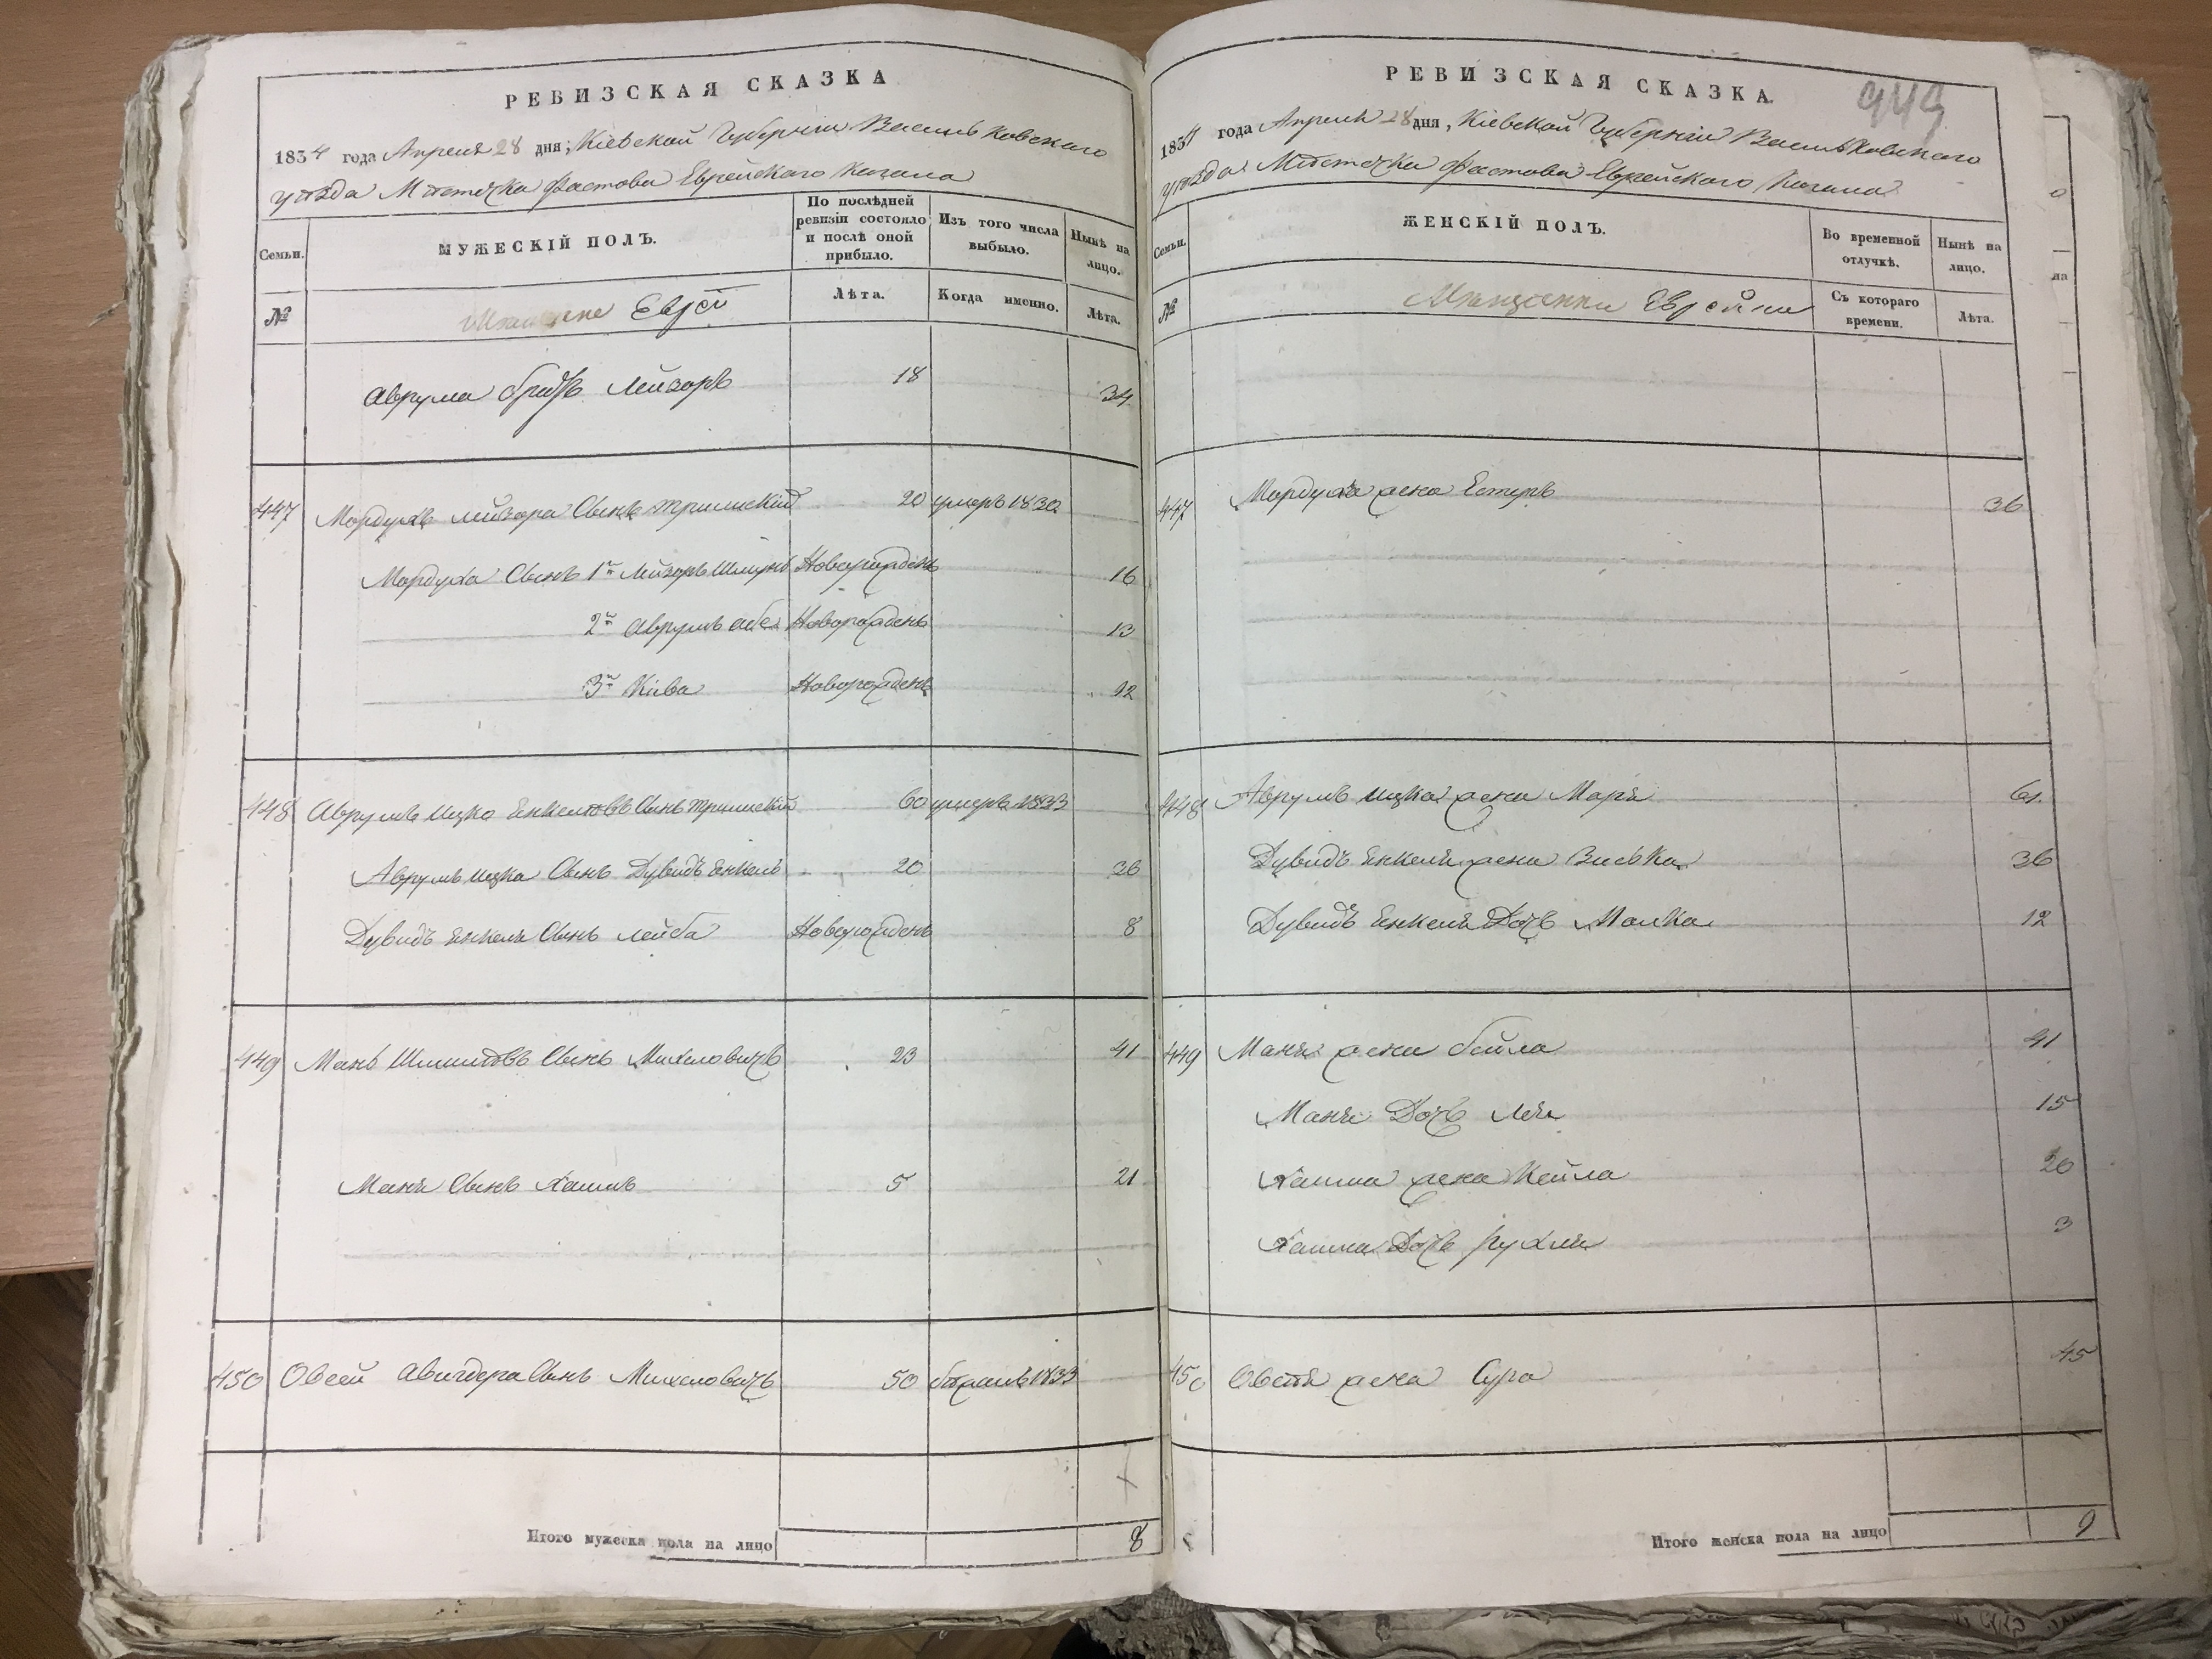 РЕВИЗСКАЯ СКАЗКА
1834 года Апреля 28 дня, Кіевской Губерніи Васильковскаго
уѣзда Мѣстечка Фастова Еврейскаго Кагала
Семьи.
МУЖЕСКІЙ ПОЛЪ.
По послѣдней ревизіи состояло и послѣ оной прибыло.
Изъ того числа выбыло.
Нынѣ на лицо.
№
Мѣщане Евреи
Лѣта.
Когда именно.
Лѣта.
Аврума братъ Лейзоръ 18 34
447 Мордухъ Лейзора Сынъ Трилискій 20 умеръ 1830
Мордуха Сынъ 1й Лейзоръ Шмунъ Новорожденъ 16
2й Аврумъ аба Новорожденъ 13
3й Кива Новорожденъ 12
448 Аврумъ Ицко Енкелювъ Сынъ Трилискій 60 умеръ 1833
Аврумъ Ицка Сынъ Дувидъ Енкель 20 36
Дувидъ Енкеля Сынъ Лейба Новорожденъ 8
449 Мань Шмилювъ Сынъ Михеловичъ 23 41
Маня Сынъ Хаимъ 5 21
450 Овсей Авигдера Сынъ Михеловичъ 50 1833
Итого мужеска пола на лицо 8
РЕВИЗСКАЯ СКАЗКА.
949
1834 года Апреля 28 дня, Кіевской Губерніи Васильковскаго
уѣзда Мѣстечка Фастова Еврейскаго Кагала
Семьи.
ЖЕНСКІЙ ПОЛЪ.
Во временной отлучкѣ.
Нынѣ на лицо.
№
Мѣщанки Еврейки
Съ котораго времени.
Лѣта.
447 Мордуха жена Естеръ 36
448 Аврумъ Ицка жена Маря 61.
Дувидъ Енкеля жена Виська 36
Дувидъ Енкеля Дочь Малка 12
449 Маня жена бейла 41
Маня Дочь Лея 15
Хаима жена Кейла 20
Хаима Дочь Рухля 3
450 Овсѣя жена Сура 45
Итого женска пола на лицо 9